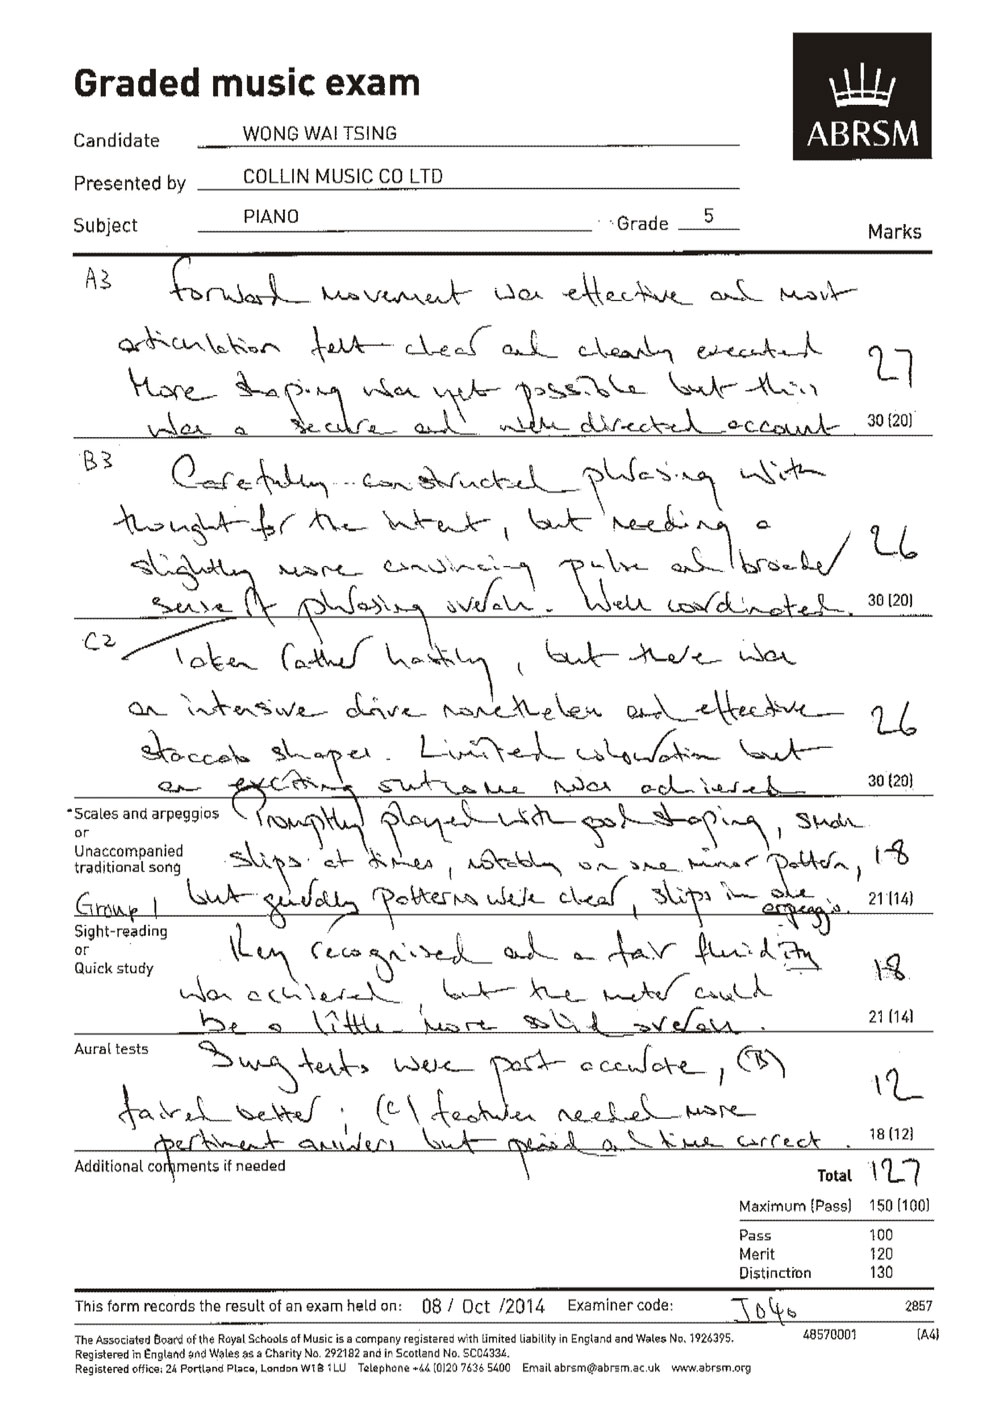 Graded music exam
ABRSM
Candidate WONG WAI TSING
Presented by COLLIN MUSIC CO LTD
Subject PIANO Grade 5
Marks
A3 Forward movement was effective and most
articulation felt clear and cleanly executed
More shaping was yet possible but this
was a secure and well directed account
27
30 (20)
B3 Carefully constructed phrasing with
thought for the intent, but needing a
slightly more convincing pulse and broader
sense of phrasing overall. Well coordinated.
26
30 (20)
C2 Taken rather hastily, but there was
an intensive drive nonetheless and effective
staccato shapes. Limited colouration but
an exciting outcome was achieved
26
30 (20)
*Scales and arpeggios
or
Unaccompanied
traditional song
Group 1
Promptly played with good shaping, small
slips at times, notably on one minor pattern,
but generally patterns were clear, slips in one
arpeggio.
18
21 (14)
Sight-reading
or
Quick study
Key recognised and a fair fluidity
was achieved, but the meter could
be a little more solid overall.
18
21 (14)
Aural tests
Sung tests were part accurate, (B)
faired better; (C) features needed more
pertinent answers but period and time correct.
12
18 (12)
Additional comments if needed
Total 127
Maximum (Pass) 150 (100)
Pass 100
Merit 120
Distinction 130
This form records the result of an exam held on: 08 / Oct /2014 Examiner code: J040 2857
48570001 (A4)
The Associated Board of the Royal Schools of Music is a company registered with limited liability in England and Wales No. 1926395.
Registered in England and Wales as a Charity No. 292182 and in Scotland No. SC04334.
Registered office: 24 Portland Place, London W1B 1LU Telephone +44 (0)20 7636 5400 Email abrsm@abrsm.ac.uk www.abrsm.org